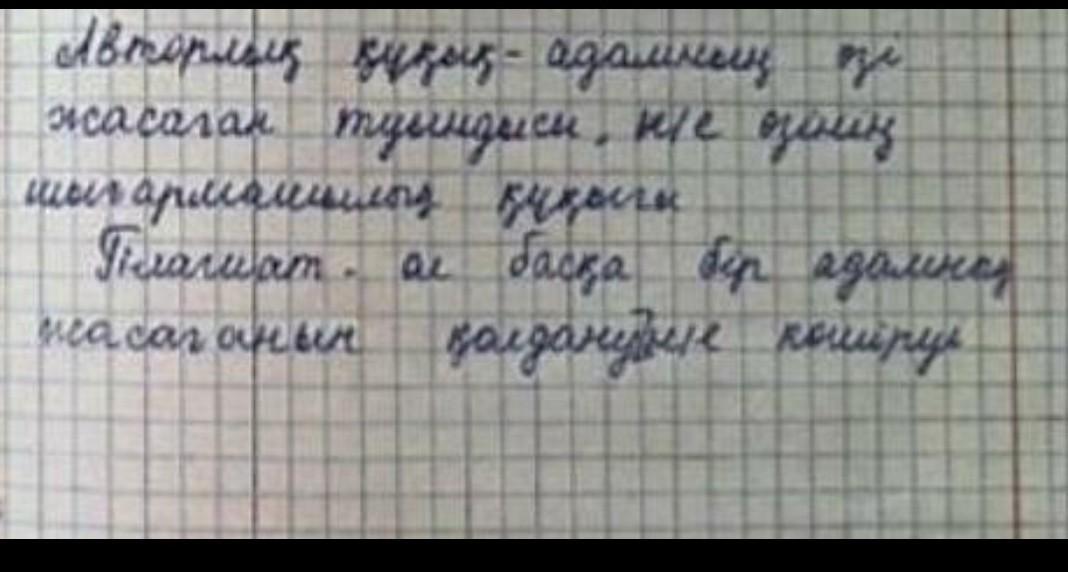 Авторлық құқық - адамның өзі
жасаған туындысы, н/е өзінің
шығармашылық құқығы
Плагиат - ол басқа бір адамның
жасағанын қолдану н/е көшіру